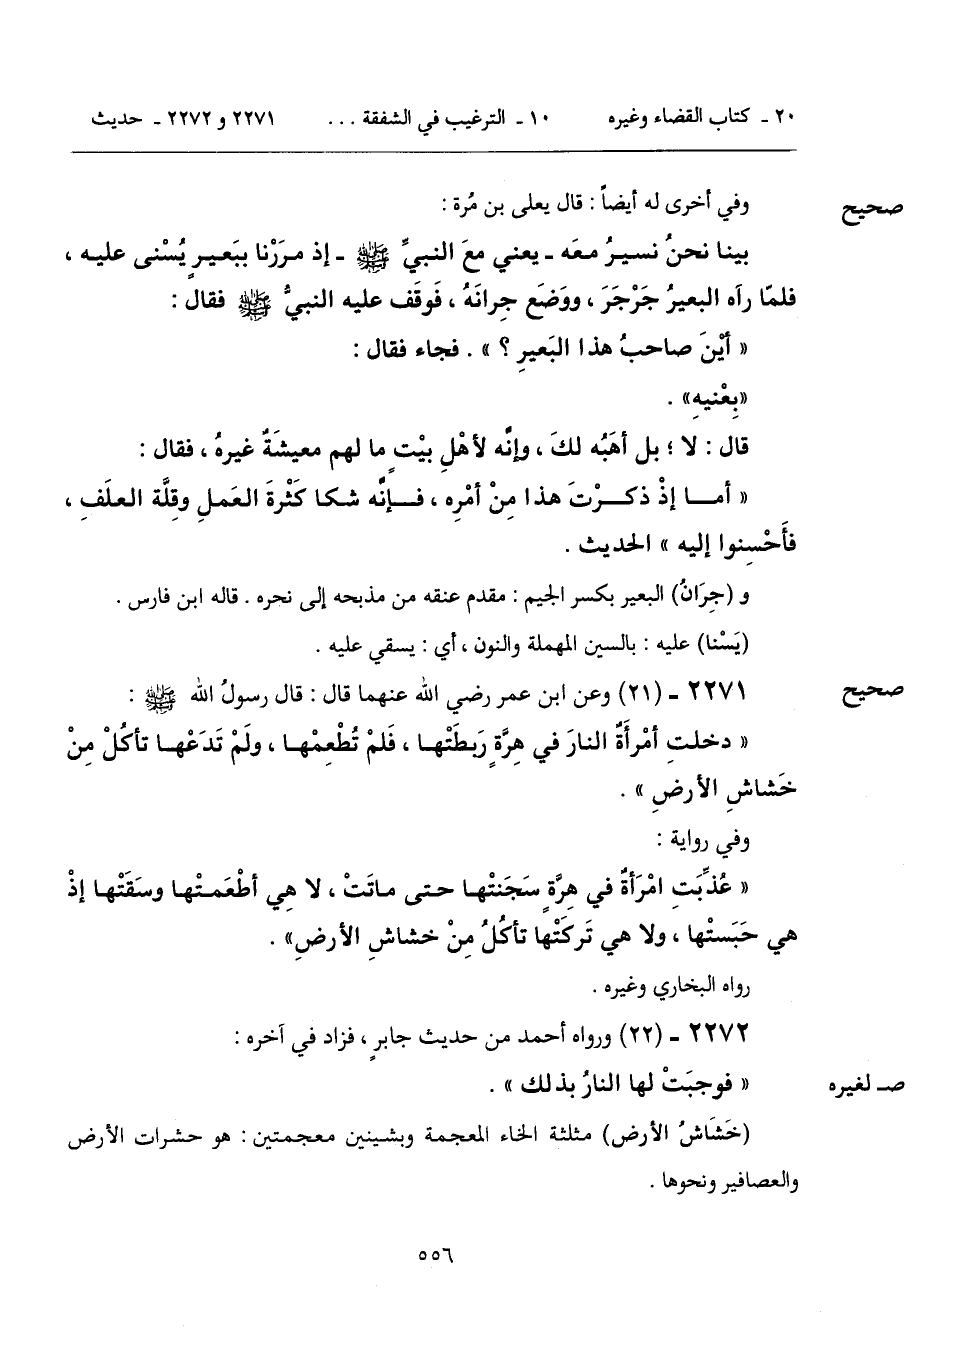 ٢٠ ـ كتاب القضاء وغيره ١٠ ـ الترغيب في الشفقة ... ٢٢٧١ و ٢٢٧٢ ـ حديث
صحيح وفي أخرى له أيضاً : قال يعلى بن مُرة :
بينا نحنُ نسيرُ معَه ـ يعني معَ النبيِّ ﷺ ـ إذ مرَرْنا ببَعيرٍ يُسْنى عليه ،
فلمّا رآه البعيرُ جَرْجَرَ ، ووَضَع جِرانَهُ ، فَوقَف عليه النبيُّ ﷺ فقال :
« أيْنَ صاحبُ هذا البَعيرِ ؟ » . فجاء فقال :
«بِعْنيهِ» .
قال : لا ؛ بل أهَبُه لكَ ، وإنَّه لأهْلِ بيْتٍ ما لهم معيشَةٌ غيرهُ ، فقال :
« أمـا إذْ ذكـرْتَ هذا مِنْ أمْرِه ، فـإنَّه شكا كَثْرةَ العَملِ وقِلَّة العلَفِ ،
فأَحْسِنوا إليه » الحديث .
و (جِرَانُ) البعير بكسر الجيم : مقدم عنقه من مذبحه إلى نحره . قاله ابن فارس .
(يَسْنا) عليه : بالسين المهملة والنون ، أي : يسقي عليه .
صحيح ٢٢٧١ ـ (٢١) وعن ابن عمر رضي الله عنهما قال : قال رسولُ الله ﷺ :
« دخلتِ أمْرأَةٌ النارَ في هِرَّةٍ رَبطَتْها ، فَلمْ تُطْعِمْها ، ولَمْ تَدَعْها تأكُلْ مِنْ
خَشاشِ الأرضِ » .
وفي رواية :
« عُذِّبَتِ امْرَأةٌ في هِرَّةٍ سَجَنَتْها حتى ماتَتْ ، لا هِي أطْعَمتْها وسَقَتْها إذْ
هي حَبَستْها ، ولا هي تَركَتْها تأكُلُ مِنْ خشاشِ الأرضِ» .
رواه البخاري وغيره .
٢٢٧٢ ـ (٢٢) ورواه أحمد من حديث جابرٍ ، فزاد في آخره :
صـ لغيره « فوجبَتْ لها النارُ بذلك » .
(خَشَاشُ الأرض) مثلثة الخاء المعجمة وبشينين معجمتين : هو حشرات الأرض
والعصافير ونحوها .
٥٥٦